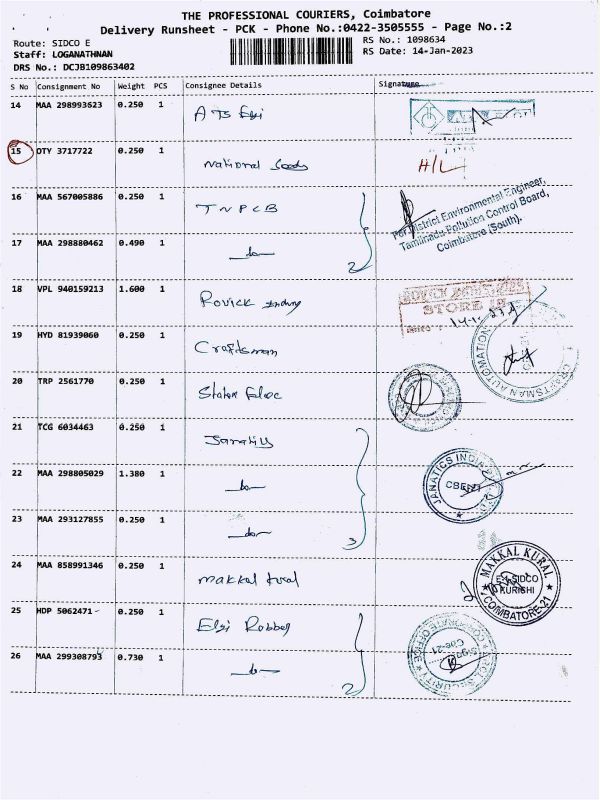 THE PROFESSIONAL COURIERS, Coimbatore
Delivery Runsheet - PCK - Phone No.:0422-3505555 - Page No.:2
Route: SIDCO E
RS No.: 1098634
Staff: LOGANATHNAN
RS Date: 14-Jan-2023
DRS No.: DCJB109863402
S No Consignment No Weight PCS Consignee Details Signature
14 MAA 298993623 0.250 1
15 OTY 3717722 0.250 1 National Goods H/L
16 MAA 567005886 0.250 1 TNPCB
For District Environmental Engineer,
Tamilnadu Pollution Control Board,
Coimbatore (South).
17 MAA 298880462 0.490 1 -do-
2
18 VPL 940159213 1.600 1
STORE
19 HYD 81939060 0.250 1 Craftsman
CRAFTSMAN AUTOMATION
20 TRP 2561770 0.250 1
21 TCG 6034463 0.250 1
22 MAA 298805029 1.380 1 -do-
JANATICS INDIA
23 MAA 293127855 0.250 1 -do-
3
24 MAA 858991346 0.250 1 makkal kural
MAKKAL KURAL
SIDCO
KURICHI
COIMBATORE-21
25 HDP 5062471 0.250 1 Elgi Rubber
CORPORATE OFFICE
Cbe-21
SECURITY
26 MAA 299308793 0.730 1 -do-
2